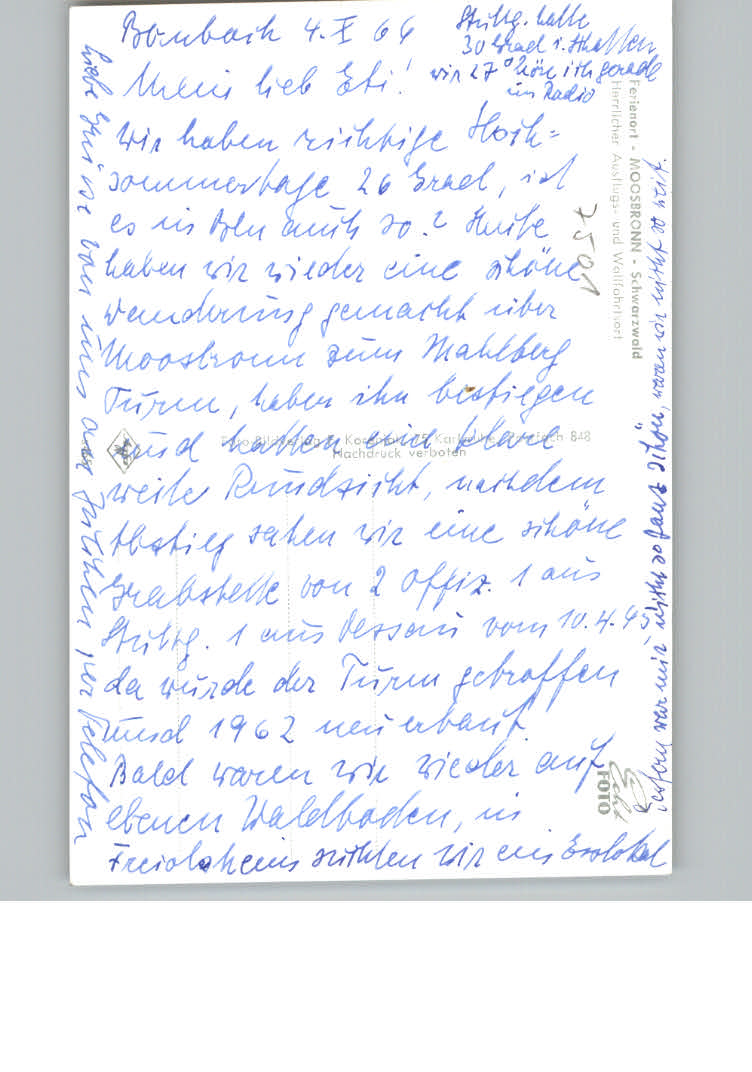 Bernbach 4. X 66
Stuttg. hatte
30 Grad i. Schatten
wir 27° hör ich gerade
im Radio
Mein lieb Eti!
Wir haben richtige Hoch=
sommertage 26 Grad, ist
es in Köln auch so? Heute
haben wir wieder eine schöne
Wanderung gemacht über
Moosbronn zum Mahlberg
Turm, haben ihn bestiegen
und hatten eine klare
weite Rundsicht, nachdem
Abstieg sahen wir eine schöne
Grabstelle von 2 Offiz. 1 aus
Stuttg. 1 aus Dessau vom 10.4.45,
da wurde der Turm getroffen
und 1962 neu erbaut
Bald waren wir wieder auf
ebenen Waldboden, in
Freiolsheim suchten wir ein Esslokal
Gestern war mir nicht so ganz schön, waren wir nicht so weit.
Liebe Grüsse von uns am per Telefon
7501
Ferienort - MOOSBRONN - Schwarzwald
Herrlicher Ausflugs- und Wallfahrtsort
Karlsruhe, Postfach 848
Nachdruck verboten
Echt
FOTO